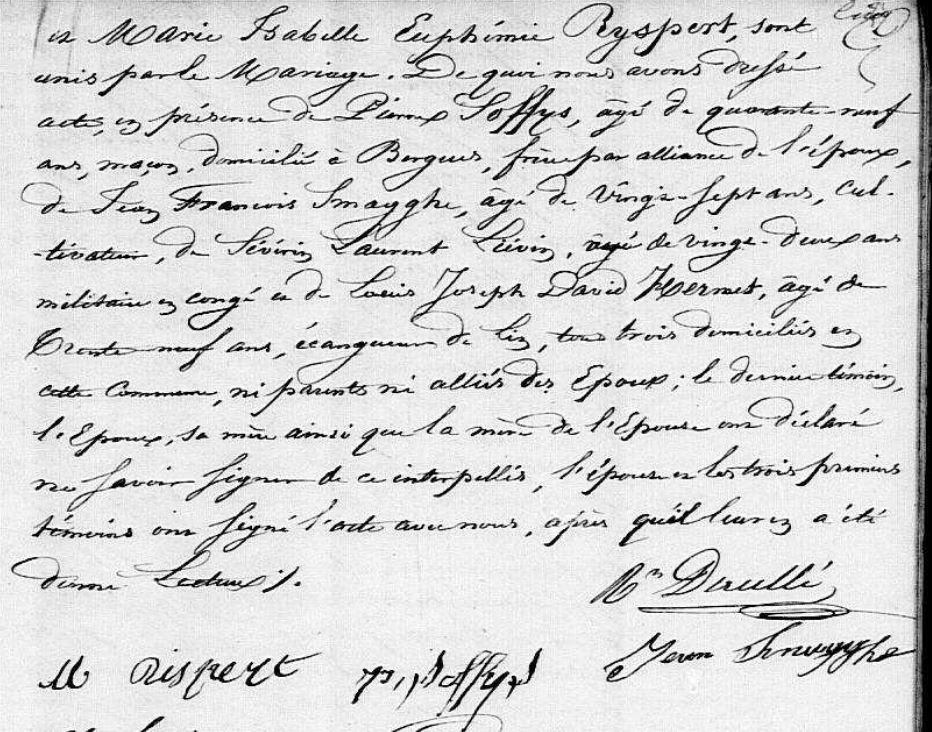 et Marie Isabelle Euphémie Ryspert, sont
unis par le Mariage. De quoi nous avons dressé
acte, en présence de Pierre Soffys, âgé de quarante-neuf
ans, maçon, domicilié à Bergues, frère par alliance de l'époux,
de Jean François Smagghe, âgé de vingt-sept ans, cul-
-tivateur, de Séverin Laurent Liévin, âgé de vingt-deux ans
militaire en congé et de Louis Joseph David Hermet, âgé de
Trente neuf ans, écangueur de lin, tous trois domiciliés en
cette Commune, ni parents ni alliés des Epoux; le dernier témoin,
l'Epoux, sa mère ainsi que la mère de l'Epouse ont déclaré
ne savoir signer de ce interpellés, l'épouse et les trois premiers
témoins ont signé l'acte avec nous, après qu'il leur en a été
donné Lecture ./.
M Rispert
Soffys
Jean Smagghe